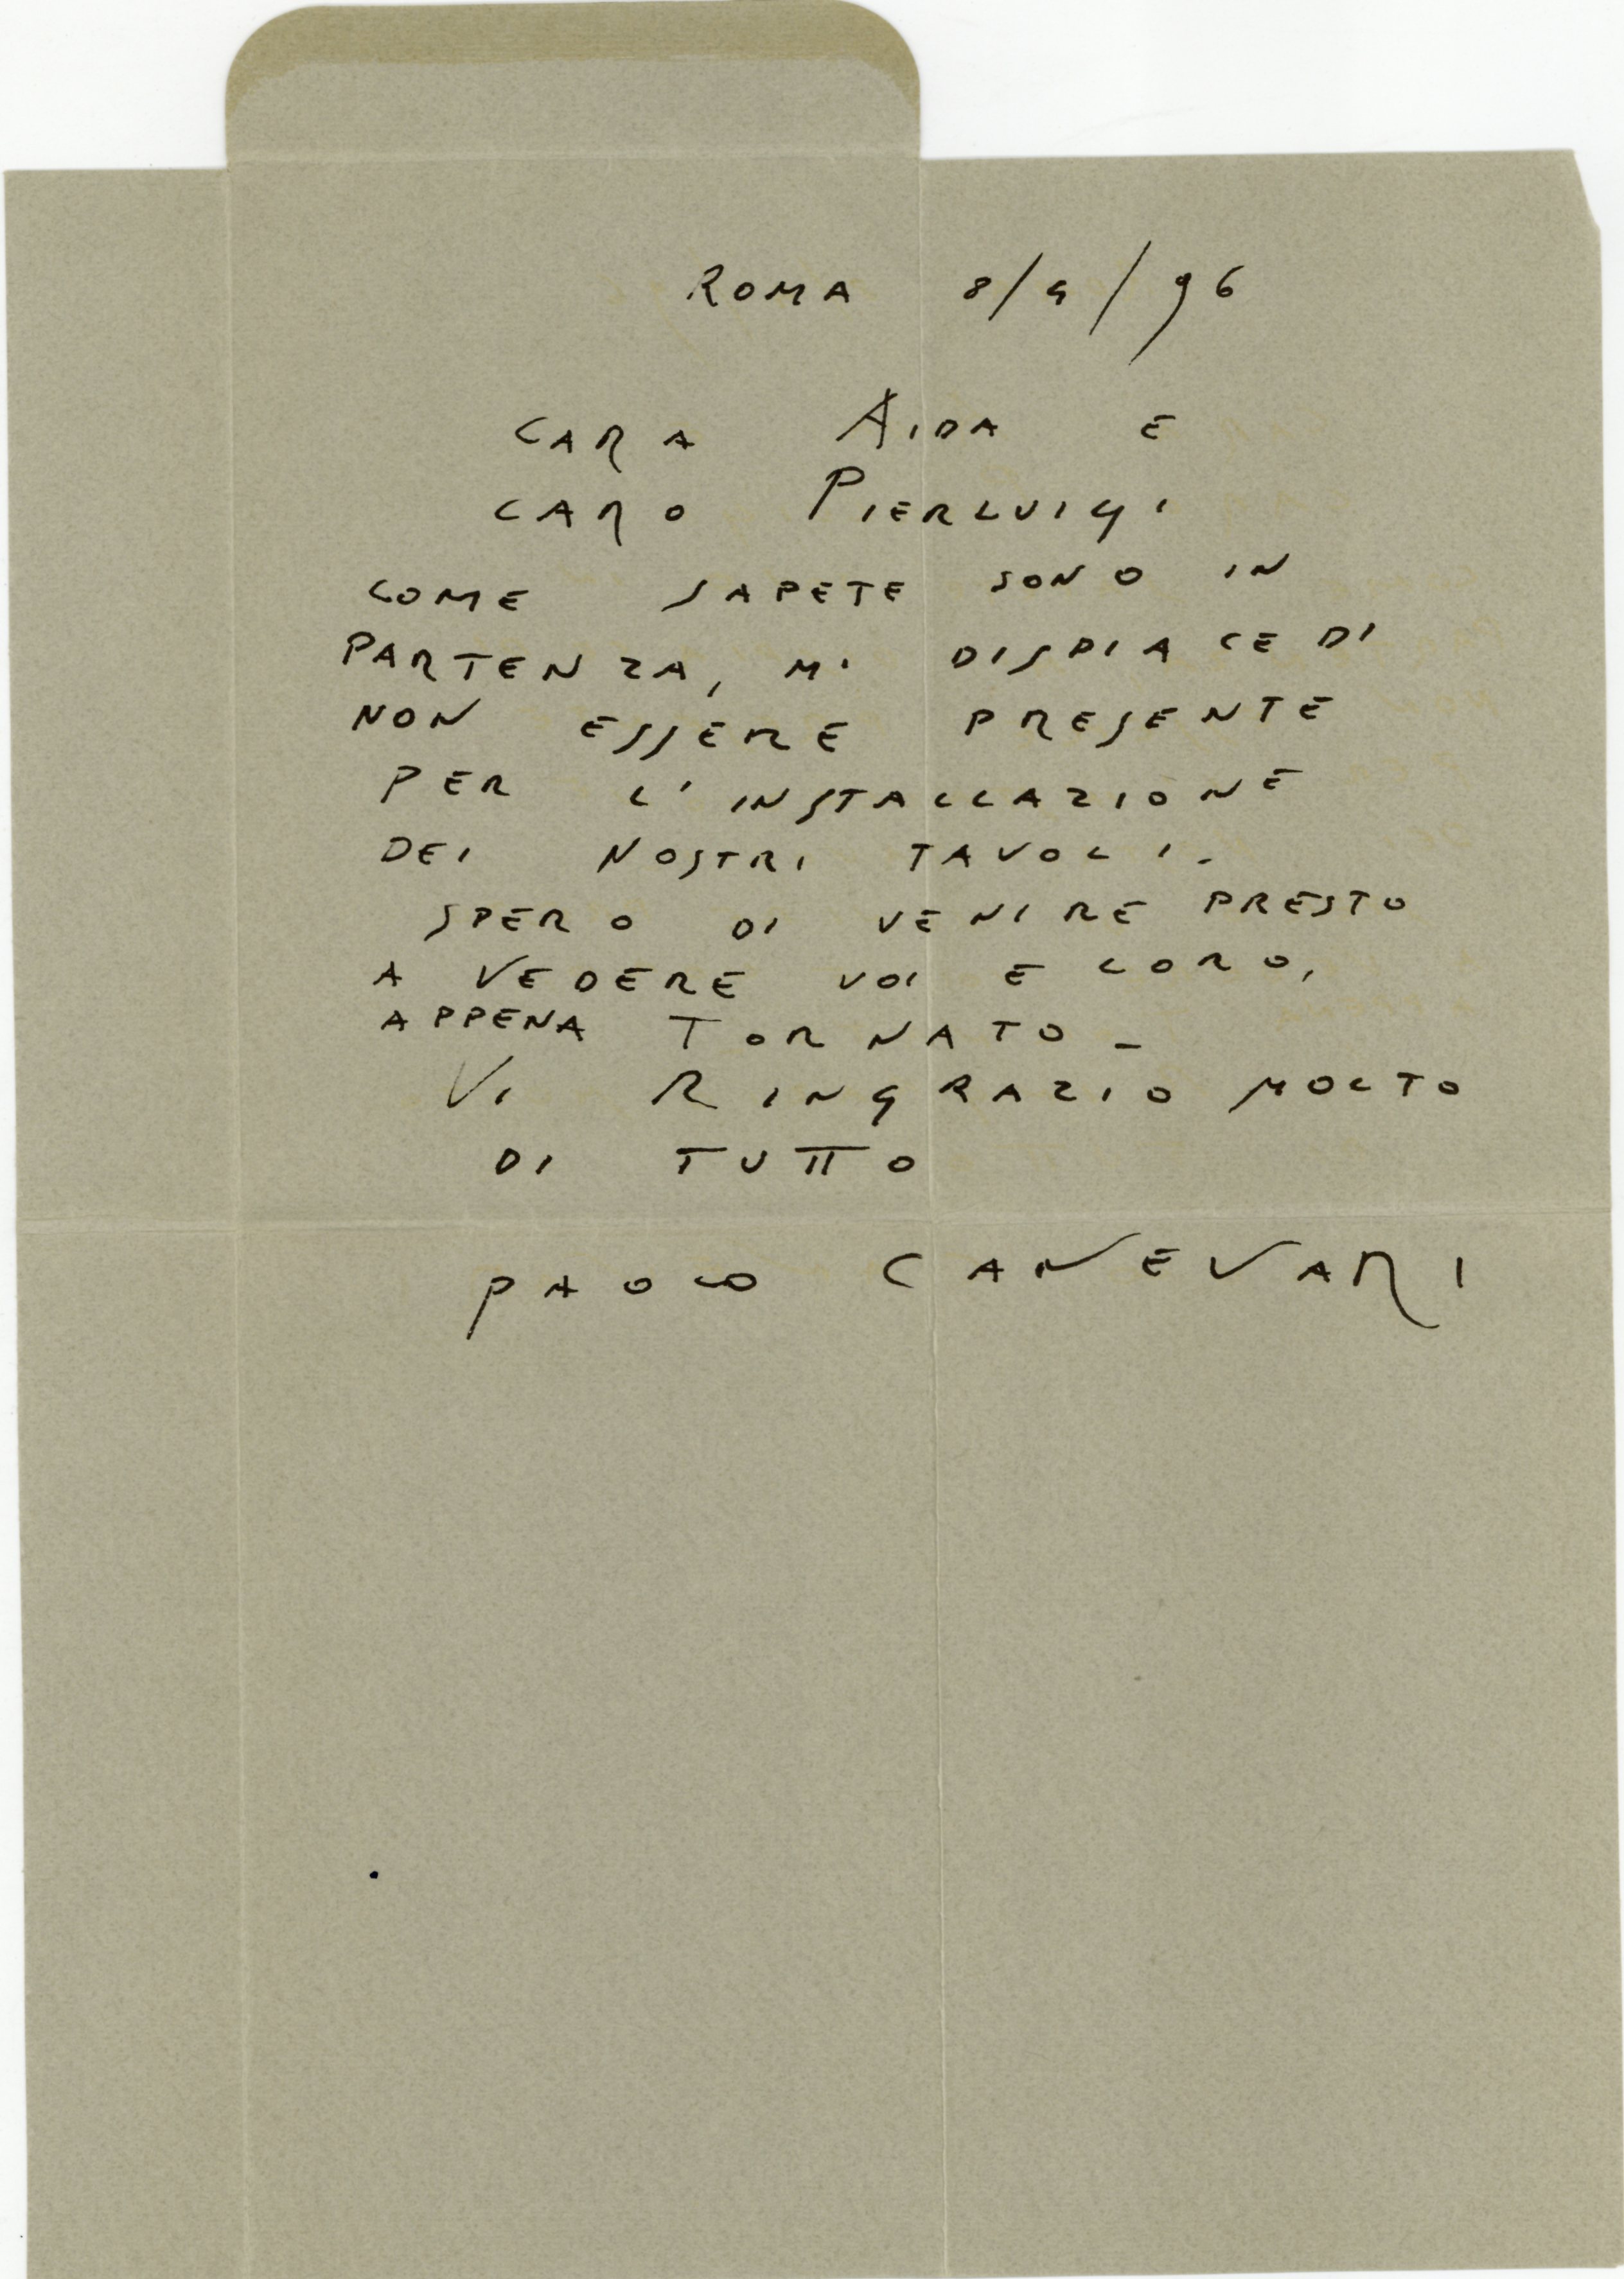 ROMA 8/9/96
CARA AIDA E
CARO PIERLUIGI
COME SAPETE SONO IN
PARTENZA, MI DISPIACE DI
NON ESSERE PRESENTE
PER L'INSTALLAZIONE
DEI NOSTRI TAVOLI.
SPERO DI VENIRE PRESTO
A VEDERE VOI E LORO,
APPENA TORNATO -
VI RINGRAZIO MOLTO
DI TUTTO
PAOLO CANEVARI